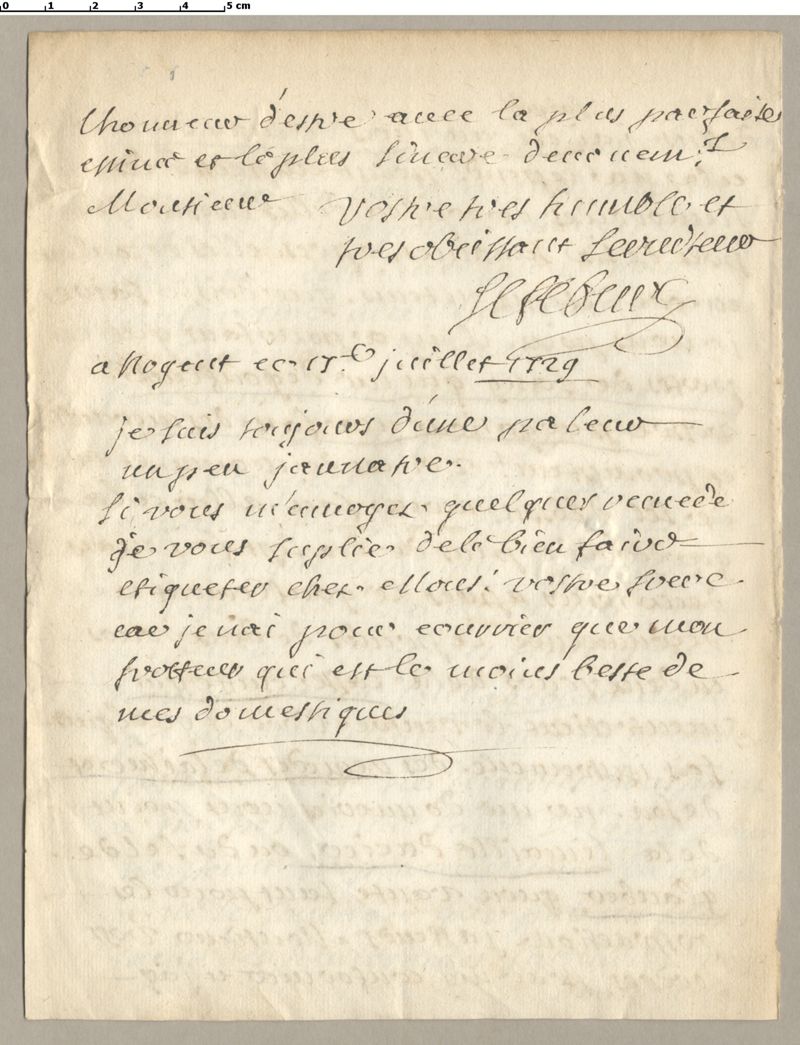 0 1 2 3 4 5 cm
lhonneur d'estre avec la plus parfaite
estime et le plus sincere devouem.t
Monsieur Vostre tres humble et
tres obeissant serviteur
lefebure
a Nogent ce 17.e juillet 1729
je suis toujours d'une paleur
un peu jaunatre.
si vous m'envoyez quelques remede
je vous suplie de le bien faire
etiqueter chez Mons.r vostre frere
car je n'ai pour courrier que mon
frotteur qui est le moins beste de
mes domestiques